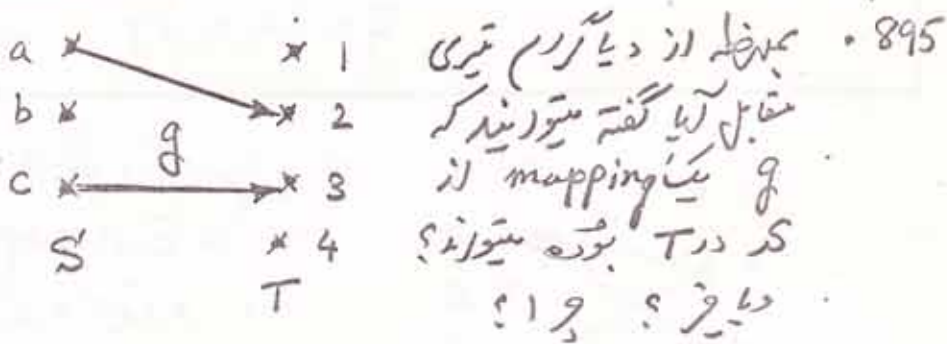 895. بملاحظه از دیاگرام تیری
مقابل آیا گفته میتوانید که
g یک mapping از
S در T بوده میتواند؟
و یا خیر؟ چرا؟
a 1
b 2
g
c 3
S 4
T